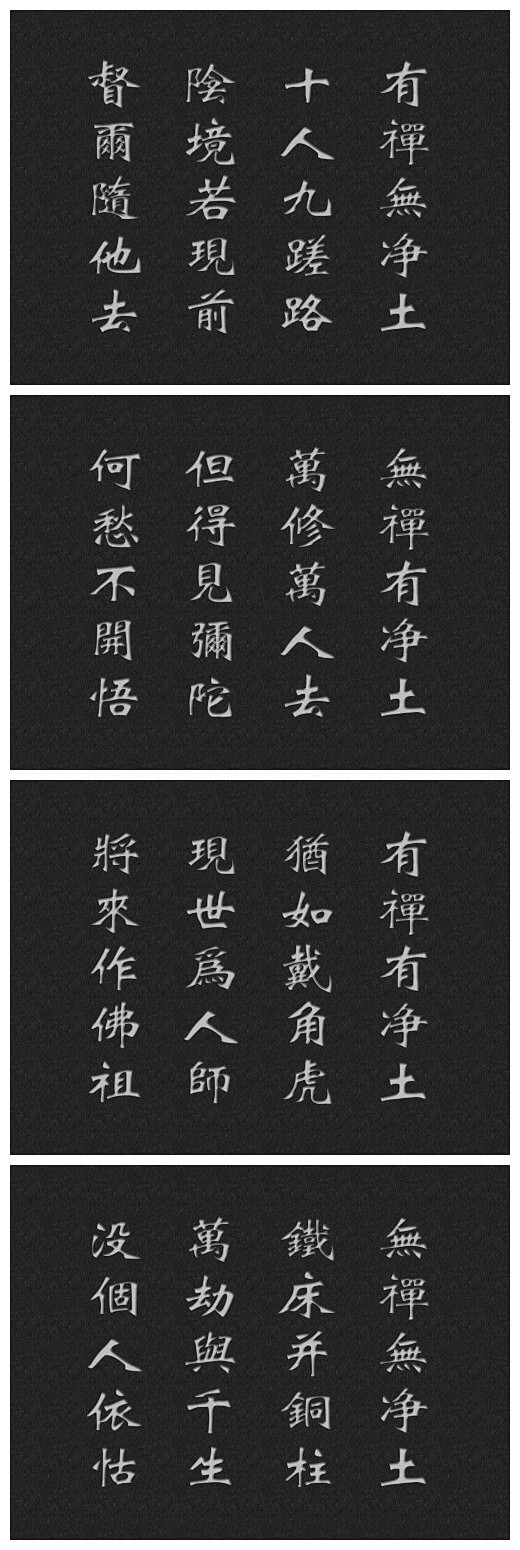 有禪無净土
十人九蹉路
陰境若現前
瞥爾隨他去
無禪有净土
萬修萬人去
但得見彌陀
何愁不開悟
有禪有净土
猶如戴角虎
現世爲人師
將來作佛祖
無禪無净土
鐵床并銅柱
萬劫與千生
没個人依怙